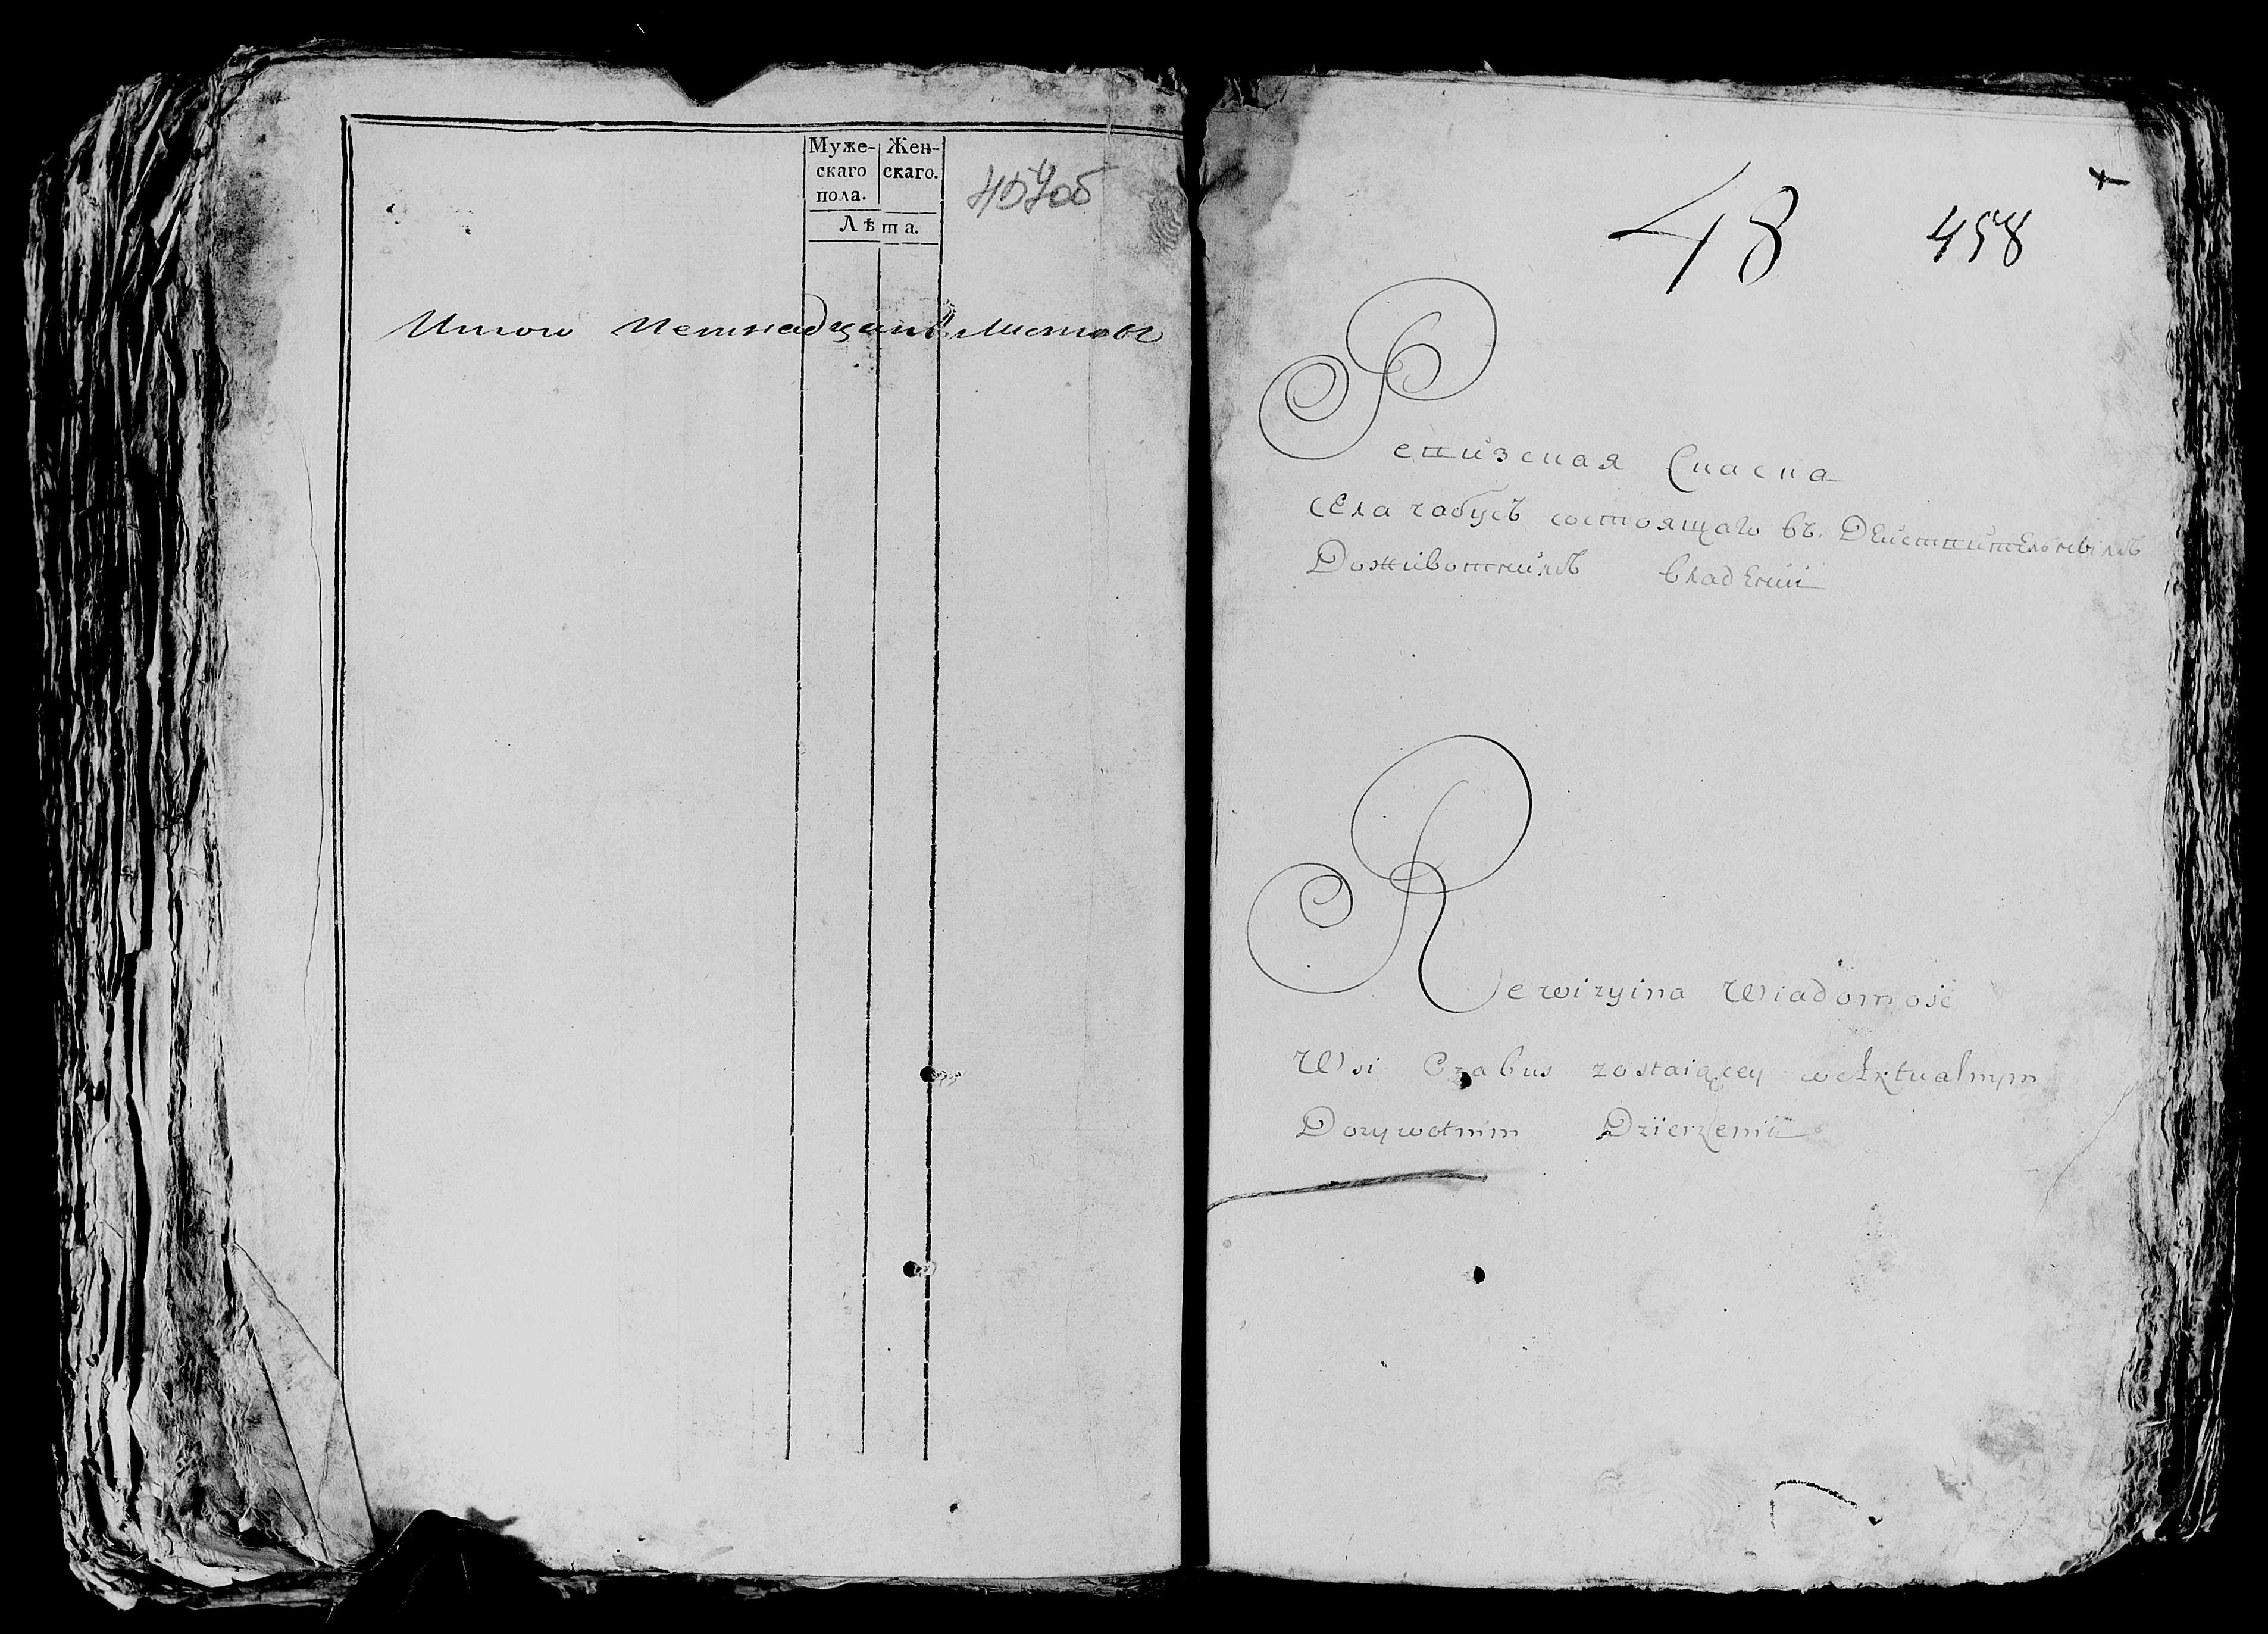 Муже-
скаго
пола.
Жен-
скаго.
Лѣта.
457об
Итого петнадцать листовъ
48
458
Ревизская Сказка
села чабусъ состоящаго въ Действительнымъ
Доживотнимъ владѣнии
Rewizyina Wiadomość
Wsi Czabus zostaiącey w Aktualnym
Dozywotnim Dzierzeniu